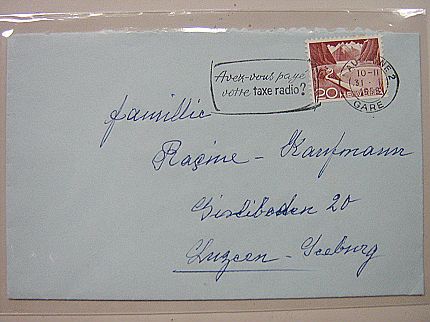 Avez-vous payé
votre taxe radio?
10-11
31
GARE
20
famillie
Racine - Kaufmann
20
Luzern - Seeburg